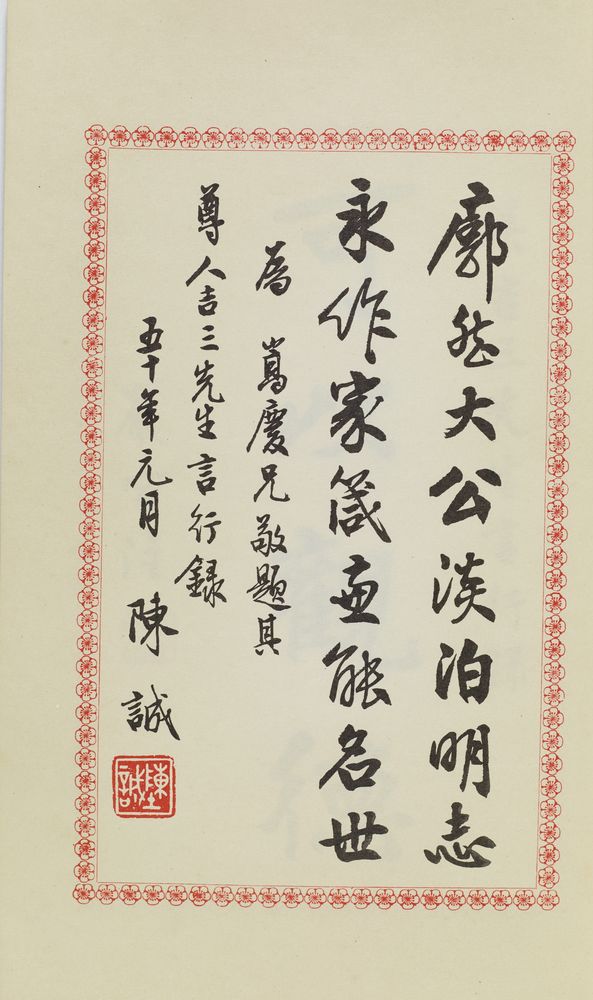 廓然大公淡泊明志
永作家箴能名世
為 嵩慶兄敬題其
尊人吉三先生言行錄
五十年元月 陳誠
陳誠